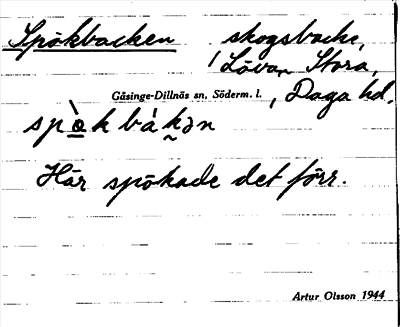 Spökbacken skogsbacke,
/ Lövan Stora,
Gåsinge-Dillnäs sn, Söderm. l. , Daga hd.
spò̱kbákən
Här spökade det förr.
Artur Olsson 1944